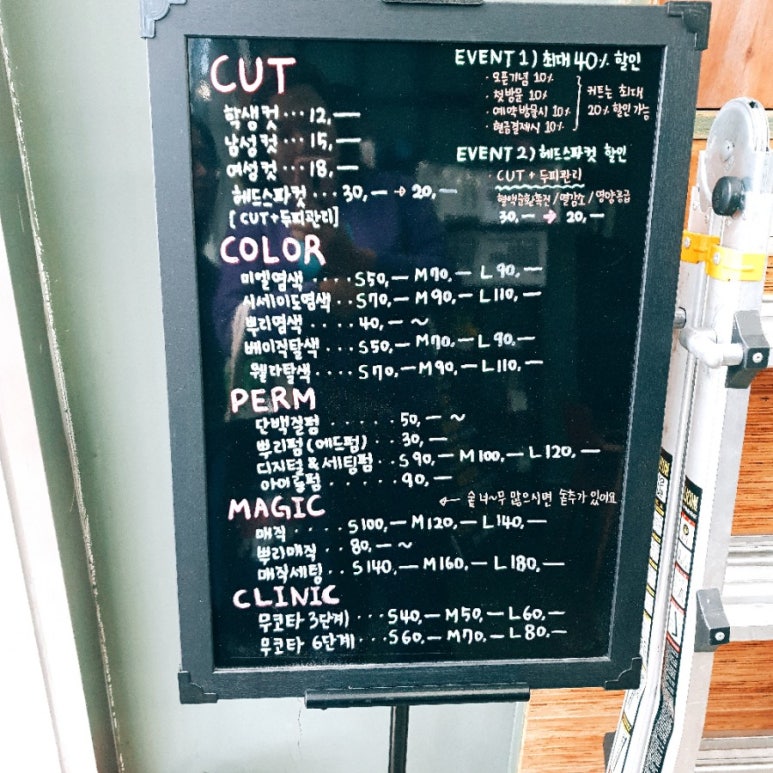 CUT
학생컷 ··· 12,—
남성컷 ··· 15,—
여성컷 ··· 18,—
헤드스파컷 ··· 30,— → 20,—
[CUT+두피관리]
EVENT 1) 최대 40% 할인
· 오픈기념 10%
· 첫방문 10%
· 예약방문시 10%
· 현금결제시 10%
커트는 최대
20% 할인가능
EVENT 2) 헤드스파컷 할인
· CUT + 두피관리
혈액순환촉진/열감소/영양공급
30,— → 20,—
COLOR
미엘염색 ···· S50,— M70,— L90,—
시세이도염색 ·· S70,— M90,— L110,—
뿌리염색 ···· 40,— ~
베이직탈색 ··· S50,— M70,— L90,—
웰라탈색 ···· S70,— M90,— L110,—
PERM
단백질펌 ····· 50,— ~
뿌리펌(애드펌) ·· 30,—
디지털&세팅펌 ·· S90,— M100,— L120,—
아이롱펌 ······ 90,—
MAGIC
← 숱 너~무 많으시면 숱추가 있어요
매직 ···· S100,— M120,— L140,—
뿌리매직 ·· 80,— ~
매직세팅 ·· S140,— M160,— L180,—
CLINIC
무코타 3단계 ··· S40,— M50,— L60,—
무코타 6단계 ··· S60,— M70,— L80,—